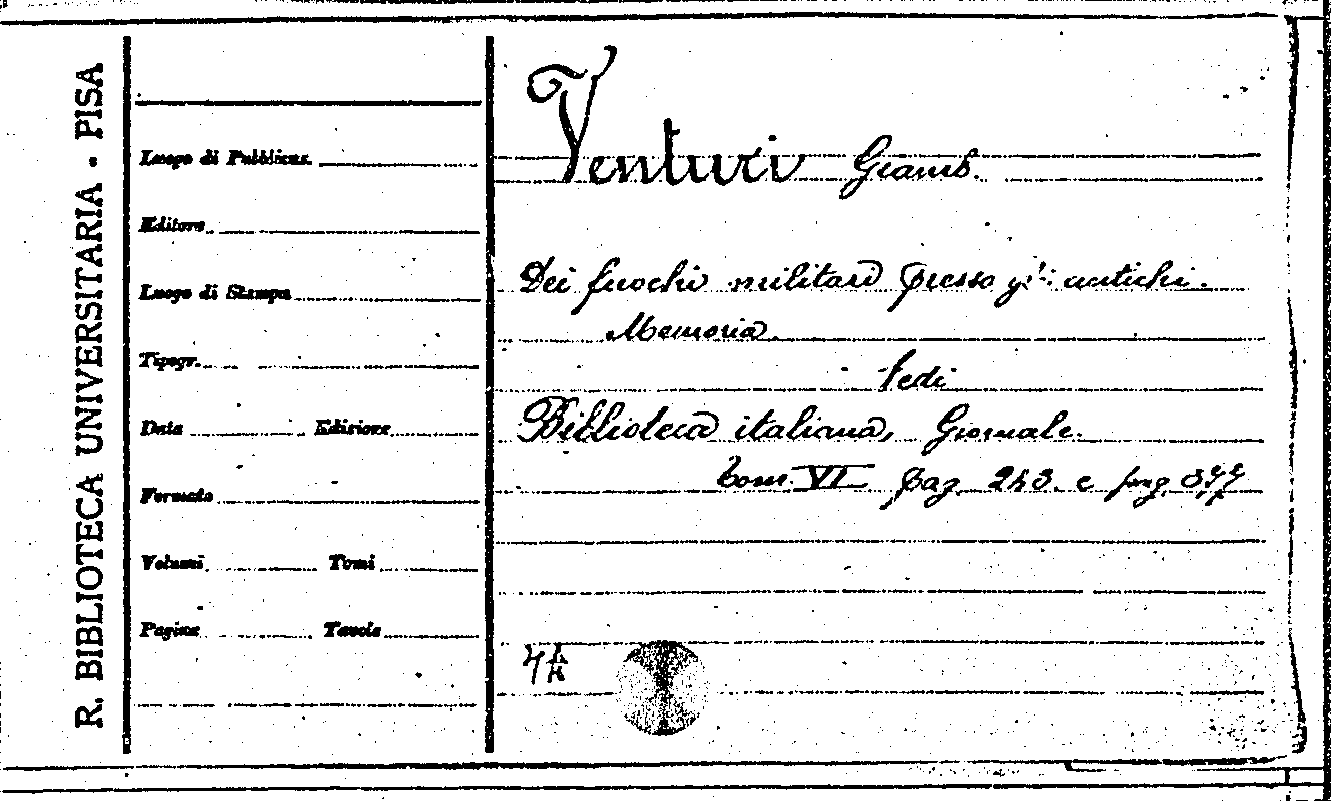 R. BIBLIOTECA UNIVERSITARIA - PISA
Luogo di Pubblicaz.
Editore
Luogo di Stampa
Tipogr.
Data Edizione
Formato
Volumi Tomi
Pagine Tavole
Venturi Giamb.
Dei fuochi militari presso gli antichi.
Memoria.
Vedi
Biblioteca italiana, Giornale.
tom. VI pag. 243. e pag.